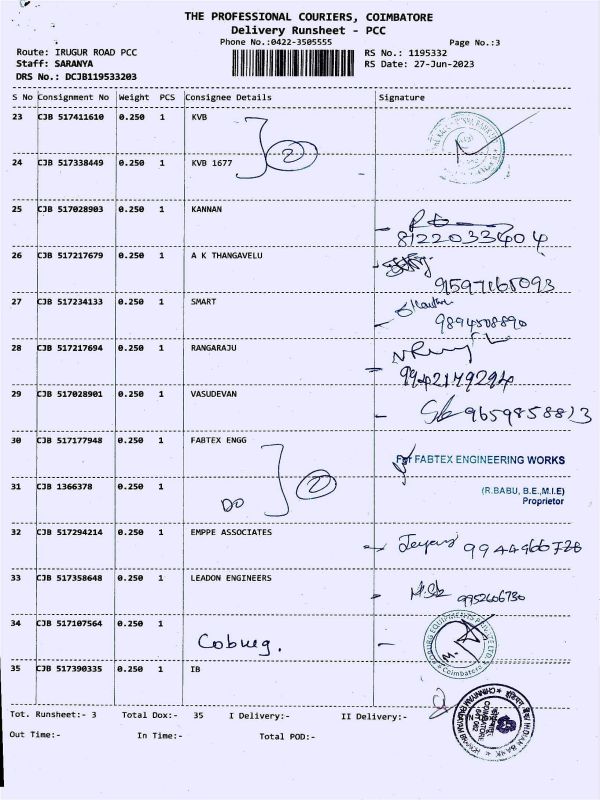 THE PROFESSIONAL COURIERS, COIMBATORE
Delivery Runsheet - PCC
Phone No.:0422-3505555 Page No.:3
Route: IRUGUR ROAD PCC RS No.: 1195332
Staff: SARANYA RS Date: 27-Jun-2023
DRS No.: DCJB119533203
S No Consignment No Weight PCS Consignee Details Signature
23 CJB 517411610 0.250 1 KVB
2
24 CJB 517338449 0.250 1 KVB 1677
25 CJB 517028903 0.250 1 KANNAN
8122033404
26 CJB 517217679 0.250 1 A K THANGAVELU
9597165093
27 CJB 517234133 0.250 1 SMART
9894508890
28 CJB 517217694 0.250 1 RANGARAJU
9942179294
29 CJB 517028901 0.250 1 VASUDEVAN
9659858813
30 CJB 517177948 0.250 1 FABTEX ENGG
For FABTEX ENGINEERING WORKS
31 CJB 1366378 0.250 1 DO 2
(R.BABU, B.E.,M.I.E)
Proprietor
32 CJB 517294214 0.250 1 EMPPE ASSOCIATES
9944966728
33 CJB 517358648 0.250 1 LEADON ENGINEERS
9952606730
34 CJB 517107564 0.250 1 Coburg.
35 CJB 517390335 0.250 1 IB
Tot. Runsheet:- 3 Total Dox:- 35 I Delivery:- II Delivery:-
Out Time:- In Time:- Total POD:-